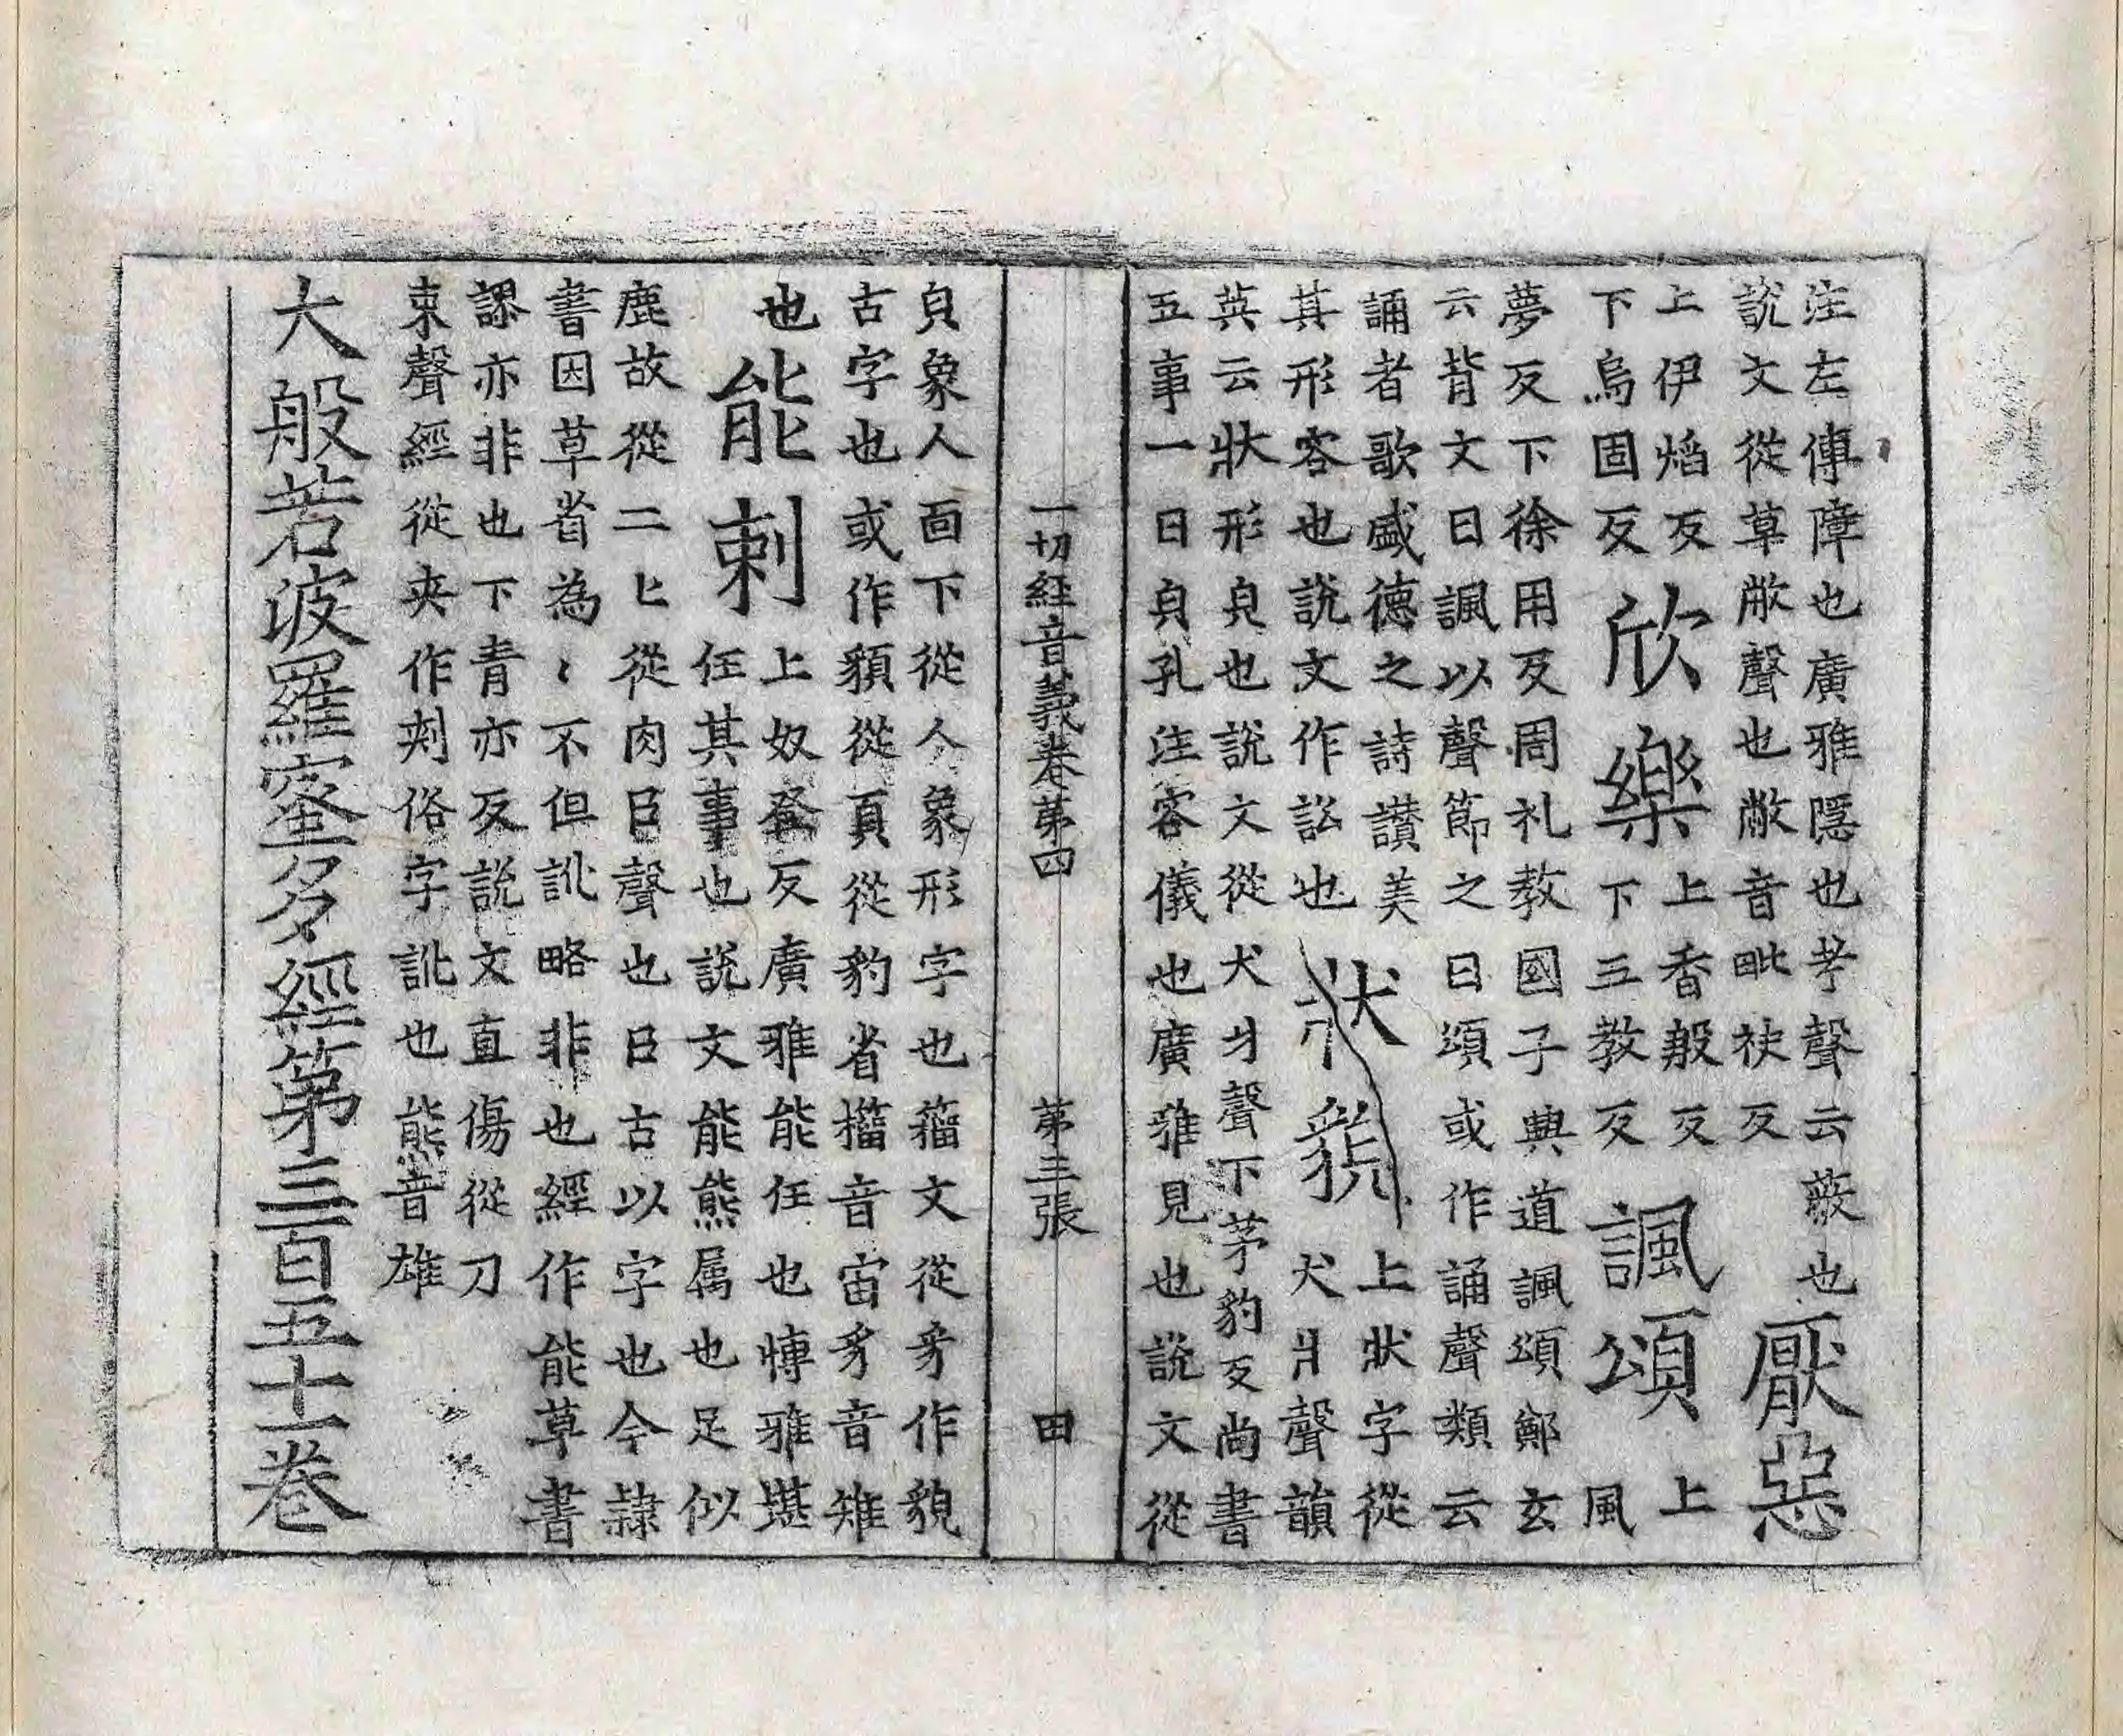 注左傳障也廣雅隱也考聲云蔽也
說文從草敝聲也敝音毗袂反
厭惡
上伊焰反
下烏固反
欣樂
上香般反
下三教反
諷頌
上
風
夢反下徐用反周礼教國子興道諷頌鄭玄
云背文曰諷以聲節之曰頌或作誦聲類云
誦者歌盛德之詩讃美
其形容也說文作訟也
狀貌
上狀字從
犬爿聲韻
英云狀形皃也說文從犬爿聲下茅豹反尚書
五事一曰皃孔注容儀也廣雅見也說文從
一切經音義卷第四 第三張 田
皃象人面下從人象形字也籀文從豸作貌
古字也或作䫉從頁從豹省籀音宙豸音雉
也
能刺
上奴登反廣雅能任也博雅堪
任其事也說文能熊属也足似
鹿故從二匕從肉㠯聲也㠯古以字也今隸
書因草省為厶不但訛略非也經作能草書
謬亦非也下青亦反說文直傷從刀
朿聲經從夾作刾俗字訛也熊音雄
大般若波羅蜜多經第三百五十一卷